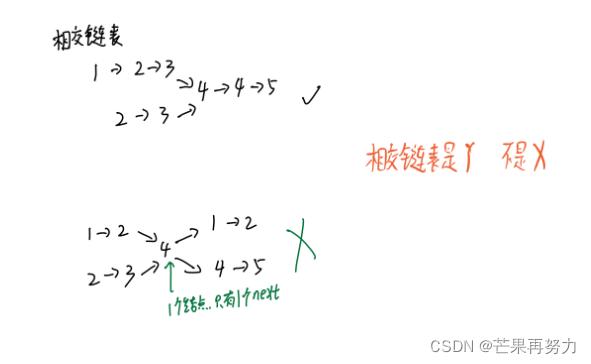 相交链表
1 → 2 → 3
→ 4 → 4 → 5 ✓
2 → 3 →
相交链表是Y 不是X
1 → 2 → 4 → 1 → 2
2 → 3 → → 4 → 5 X
1个结点..只有1个next
CSDN @芒果再努力